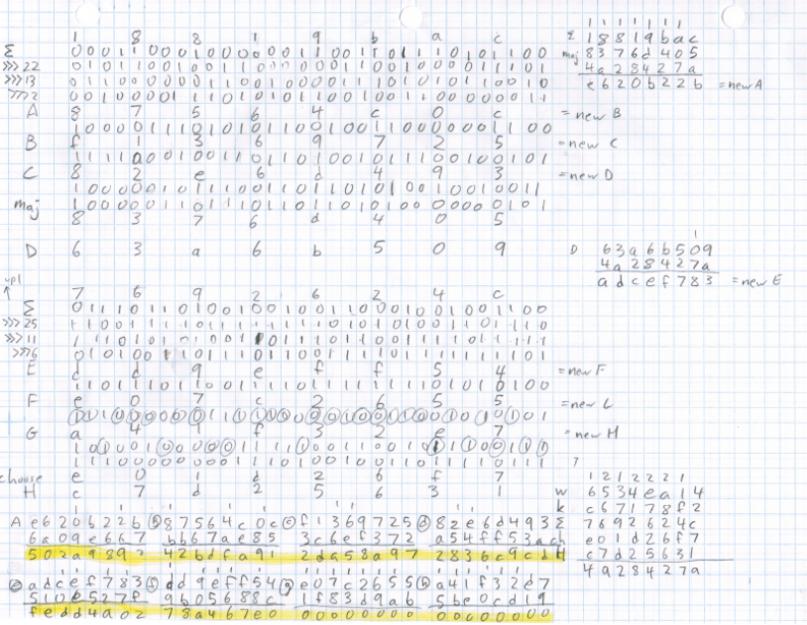 1 8 8 1 9 b a c
Σ 0001 1000 1000 0001 1001 1011 1010 1100
>>>22 0101 1001 0011 0000 0011 0010 0001 1101
>>>13 0110 0000 0110 0100 0011 1010 1011 0010
>>>2 0010 0001 1101 0101 1001 0011 0000 0011
A 8 7 5 6 4 c 0 c = new B
1000 0111 0101 0110 0100 1100 0000 1100
B f 1 3 6 9 7 2 5 = new C
1111 0001 0011 0110 1001 0111 0010 0101
C 8 2 e 6 d 4 9 3 = new D
1000 0010 1110 0110 1101 0100 1001 0011
maj 1000 0011 0111 0110 1101 0100 0000 0101
8 3 7 6 d 4 0 5
D 6 3 a 6 b 5 0 9
1 1 1 1 1 1
Σ 18819bac
maj 8376d405
4a28427a
e620b22b = new A
1
D 63a6b509
4a28427a
adcef783 = new E
upl
↑
7 6 9 2 6 2 4 c
Σ 0111 0110 1001 0010 0110 0010 0100 1100
>>>25 1100 1111 0111 1111 1010 1010 0110 1110
>>>11 1110 1010 1001 1011 1011 0011 1101 1111
>>>6 0101 0011 0111 0110 0111 1011 1111 1101
E d d 9 e f f 5 4 = new F
1101 1101 1001 1110 1111 1111 0101 0100
F e 0 7 c 2 6 5 5 = new G
1110 0000 0111 1100 0010 0110 0101 0101
G a 4 1 f 3 2 e 7 = new H
1010 0100 0001 1111 0011 0010 1110 0111
1110 0000 0001 1101 0010 0110 1111 0111
choose e 0 1 d 2 6 f 7
H c 7 d 2 5 6 3 1
1 2 1 2 2 2 1
w 6534ea14
k c67178f2
Σ 7692624c
ch e01d26f7
H c7d25631
4a28427a
A e620b22b b 87564c0c c f1369725 d 82e6d493
6a09e667 bb67ae85 3c6ef372 a54ff53a
502a9892 42bdfa91 2da58a97 2836c9cd
e adcef783 f dd9eff54 g e07c2655 h a41f32e7
510e527f 9b05688c 1f83d9ab 5be0cd19
fedd4a02 78a467e0 00000000 00000000